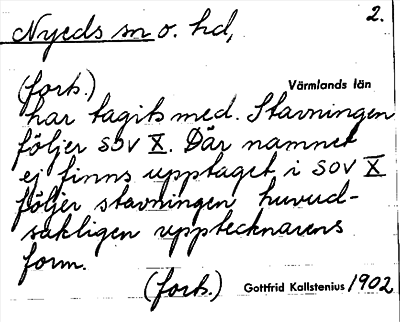 2.
Nyeds sn o. hd,
(forts.) Värmlands län
har tagits med. Stavningen
följer SOV X. Där namnet
ej finns upptaget i SOV X
följer stavningen huvud-
sakligen upptecknarens
form.
(forts.) Gottfrid Kallstenius 1902